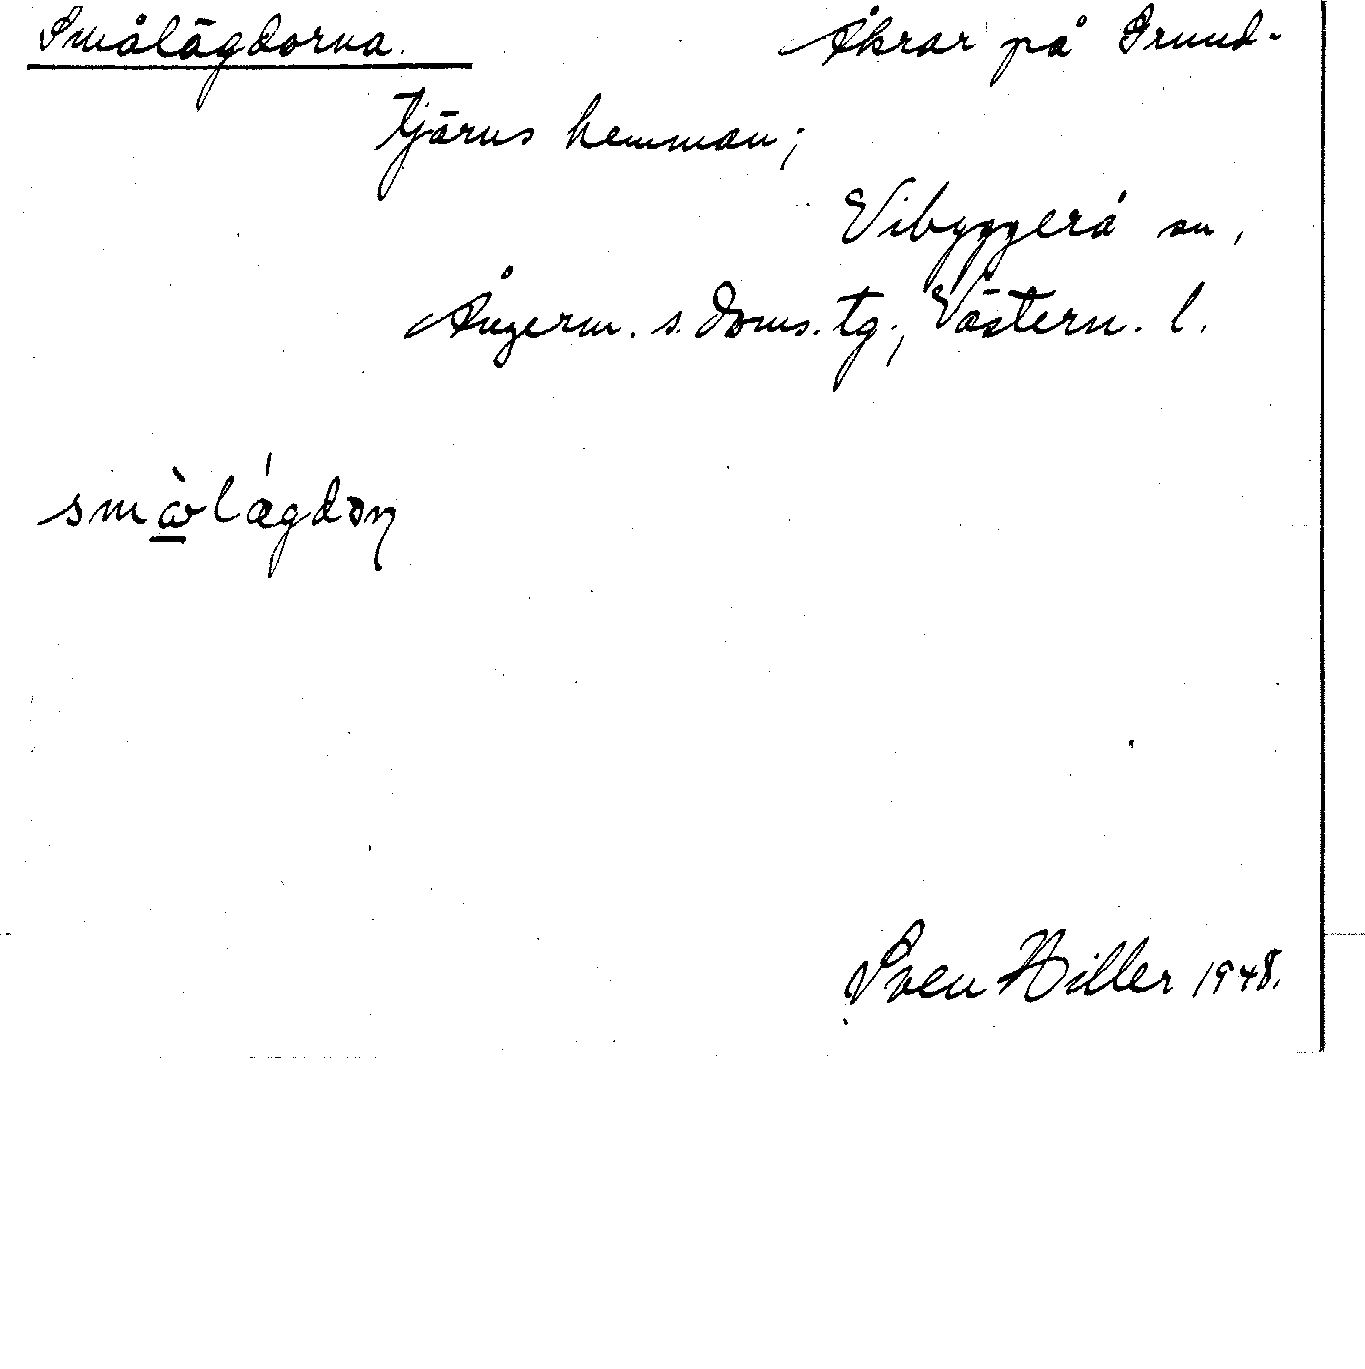 Smålägdorna. Åkrar på Grund-
tjärns hemman;
Vibyggerå sn,
Ångerm. s. doms. tg., Västern. l.
smɷ̀lǽgdoɳ
Sven Hiller 1948.